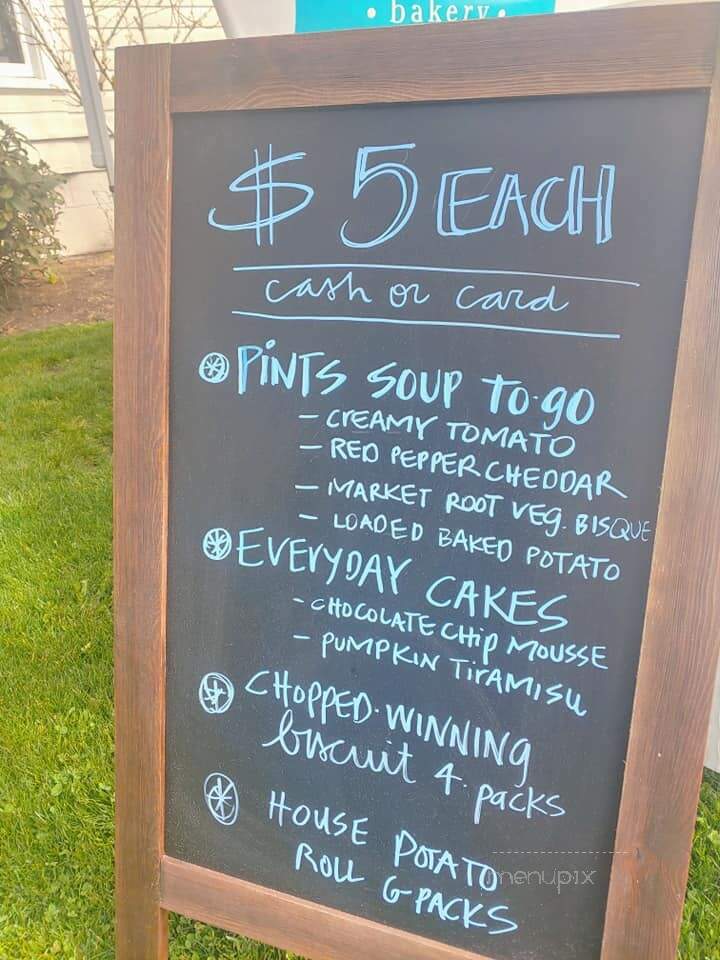 • bakery •
$5 EACH
cash or card
PINTS SOUP TO-GO
- CREAMY TOMATO
- RED PEPPER CHEDDAR
- MARKET ROOT VEG. BISQUE
- LOADED BAKED POTATO
EVERYDAY CAKES
- CHOCOLATE CHIP MOUSSE
- PUMPKIN TIRAMISU
CHOPPED-WINNING
biscuit 4-packs
HOUSE POTATO
ROLL 6-PACKS
menupix